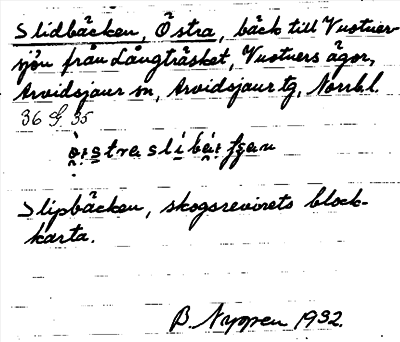 Slidbäcken, Östra, bäck till Vustner-
sjön från Långträsket, Vustners ägor,
Arvidsjaur sn, Arvidsjaur tg, Norrb.l.
36 G 35
Slipbäcken, skogsrevirets block-
karta.
B. Nyppen 1932.